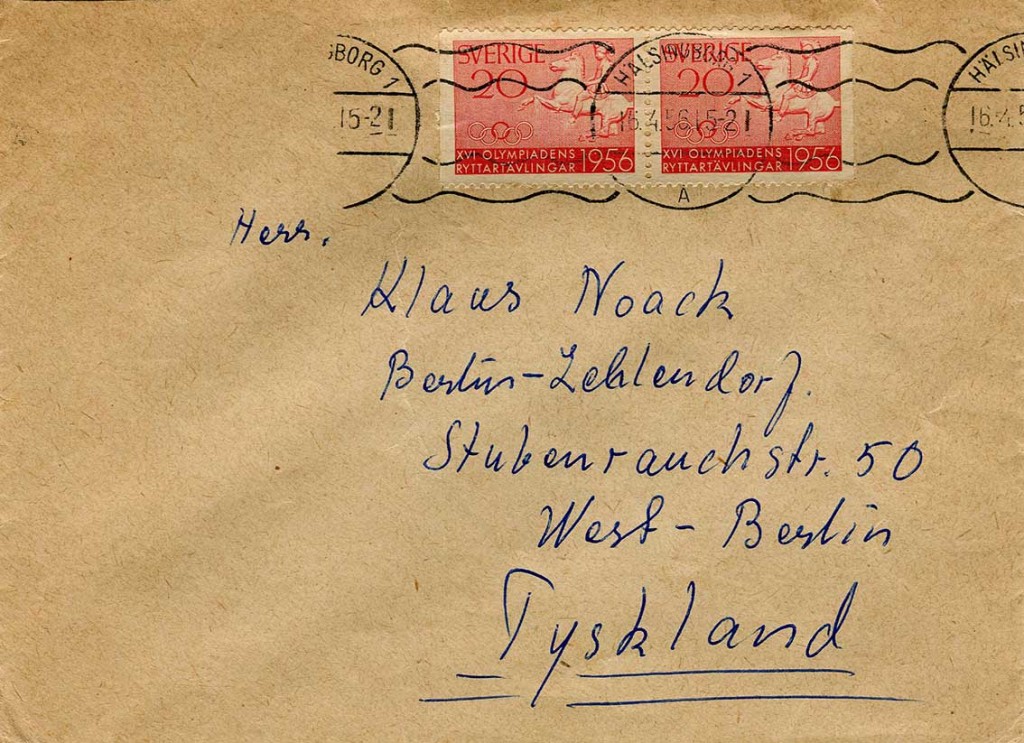 SVERIGE SVERIGE
20 20
XVI OLYMPIADENS 1956 XVI OLYMPIADENS 1956
RYTTARTÄVLINGAR RYTTARTÄVLINGAR
SBORG 1 HÄLSINGBORG 1 HÄLSIN
15-21 16.4.56.15-21 16.4.5
A
Herr.
Klaus Noack
Berlin-Zehlendorf.
Stubenrauchstr. 50
West-Berlin
Tyskland